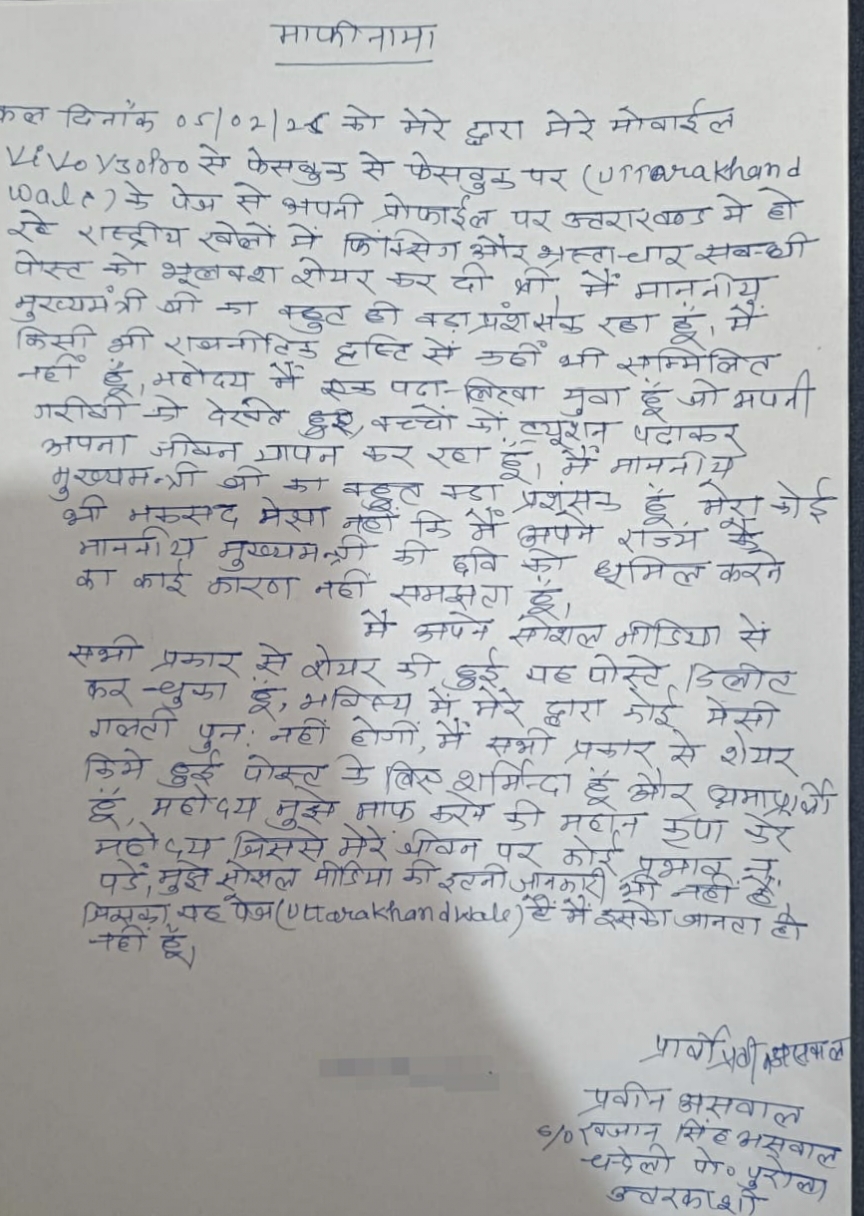 माफीनामा
कल दिनांक 05/02/25 को मेरे द्वारा मेरे मोबाईल
Vivo V30Pro से फेसबुक से फेसबुक पर (Uttarakhand
Wale) के पेज से अपनी प्रोफाईल पर उत्तराखण्ड मे हो
रहे राष्ट्रीय खेलों में फिक्सिंग और भ्रष्टाचार सबन्धी
पोस्ट को भूलवश शेयर कर दी थी मैं माननीय
मुख्यमंत्री जी का बहुत ही बड़ा प्रंशसक रहा हूँ, मैं
किसी भी राजनीतिक दृष्टि से कहीं भी सम्मिलित
नहीं हूँ, महोदय मैं एक पढा-लिखा युवा हूँ जो अपनी
गरीबी को देखते हुए, बच्चों को ट्यूशन पढाकर
अपना जीवन यापन कर रहा हूँ, मैं माननीय
मुख्यमन्त्री जी का बहुत बडा प्रशंसक हूँ मेरा कोई
भी मकसद ऐसा नहीं कि मैं अपने राज्य के
माननीय मुख्यमन्त्री की छवि को धूमिल करने
का कोई कारण नहीं समझता हूँ,
मै अपने सोशल मीडिया से
सभी प्रकार से शेयर की हुई यह पोस्ट डिलीट
कर चुका हूं, भविष्य में मेरे द्वारा कोई ऐसी
गलती पुन: नहीं होगी, मैं सभी प्रकार से शेयर
किये हुई पोस्ट के लिए शर्मिन्दा हूँ और क्षमाप्रार्थी
हूँ, महोदय मुझे माफ करने की महान कृपा करे
महोदय जिससे मेरे जीवन पर कोई प्रभाव न
पडें, मुझे सोसल मीडिया की इतनी जानकारी भी नहीं है
जिसका यह पेज (Uttarakhand Wale) है मैं इसको जानता ही
नहीं हूँ,
प्रार्थी
प्रवीन असवाल
S/O खजान सिंह असवाल
चन्देली पो० पुरोला
उत्तरकाशी